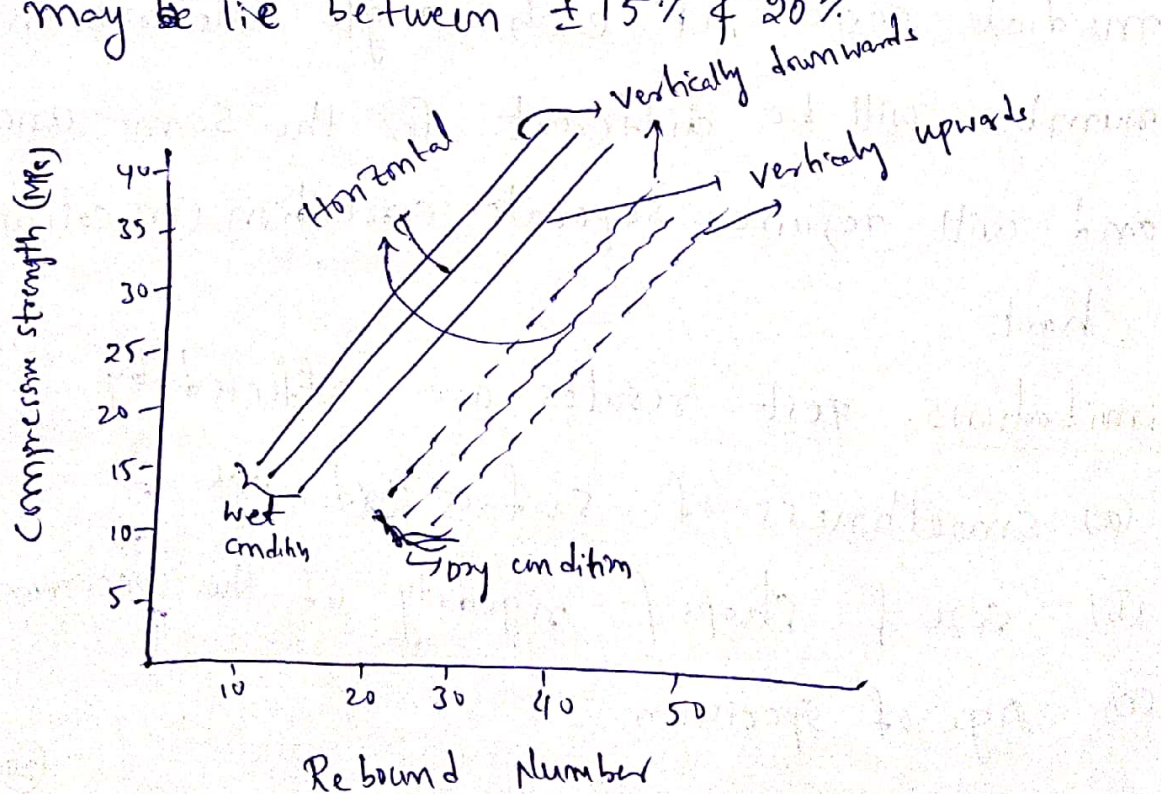 may be lie between ± 15% & 20%
vertically downwards
vertically upwards
Horizontal
Compressive strength (MPa)
40
35
30
25
20
15
10
5
Wet
condition
Dry condition
10
20
30
40
50
Rebound Number